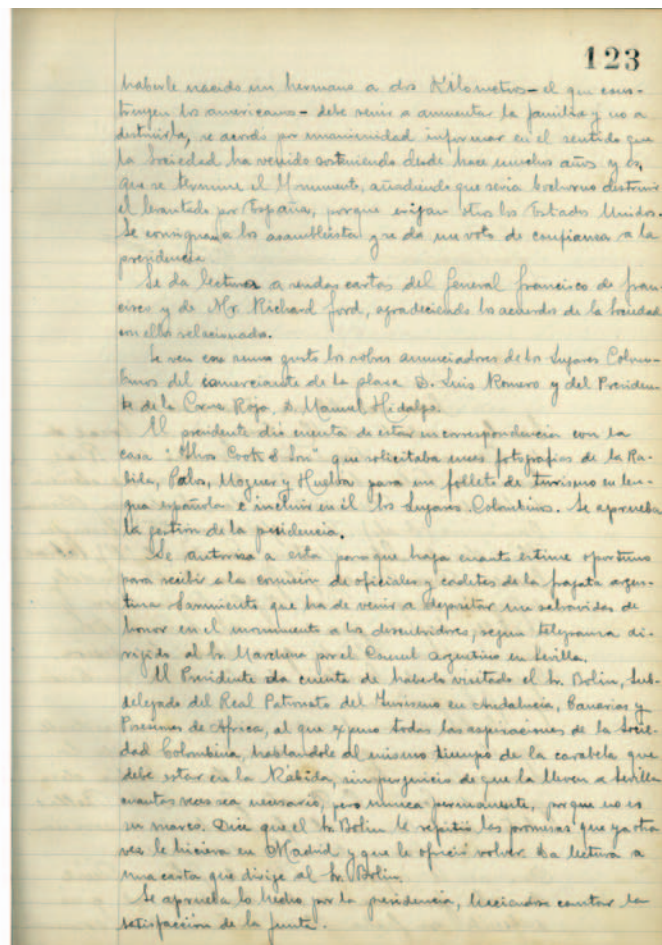 123
haberle nacido un hermano a dos Kilometros - el que cons-
truyen los americanos - debe venir a aumentar la familia y no a
destruirla, se acordó por unanimidad informar en el sentido que
la Sociedad ha venido sosteniendo desde hace muchos años y es,
que se termine el Monumento, añadiendo que seria bochorno destruir
el levantado por España, porque erijan otro los Estados Unidos.
Se consigna a los asambleista y se da un voto de confianza a la
presidencia
Se da lectura a sendas cartas del General Francisco de Fran-
cisco y de Mr. Richard Ford, agradeciendo los acuerdos de la Sociedad
con ellos relacionada.
Se ven con sumo gusto los sobres anunciadores de los Lugares Colom-
binos del comerciante de la plaza D. Luis Romero y del Presiden-
te de la Cruz Roja, D. Manuel Hidalgo.
El presidente dió cuenta de estar en correspondencia con la
casa "Thos Cook & Son" que solicitaba unas fotografias de la Rá-
bida, Palos, Moguer y Huelva para un folleto de turismo en len-
gua española e incluir en él los Lugares Colombinos. Se aprueba
la gestión de la presidencia.
Se autoriza a esta para que haga cuanto estime oportuno
para recibir a la comisión de oficiales y cadetes de la fragata argen-
tina Sarmiento que ha de venir a depositar un salvavidas de
honor en el monumento a los descubridores, segun telegrama di-
rigido al Sr. Marchena por el Consul argentino en Sevilla.
El Presidente da cuenta de haberlo visitado el Sr. Bolin, Sub-
delegado del Real Patronato del Turismo en Andalucia, Canarias y
Posesiones de Africa, al que expuso todas las aspiraciones de la Socie-
dad Colombina, hablandole al mismo tiempo de la carabela que
debe estar en la Rábida, sin perjuicio de que la lleven a Sevilla
cuantas veces sea necesario, pero nunca permanente, porque no es
su marco. Dice que el Sr. Bolin le repitió las promesas que ya otra
vez le hiciera en Madrid y que le ofreció volver. Da lectura a
una carta que dirige al Sr. Bolin.
Se aprueba lo hecho por la presidencia, haciendose constar la
satisfacción de la Junta.